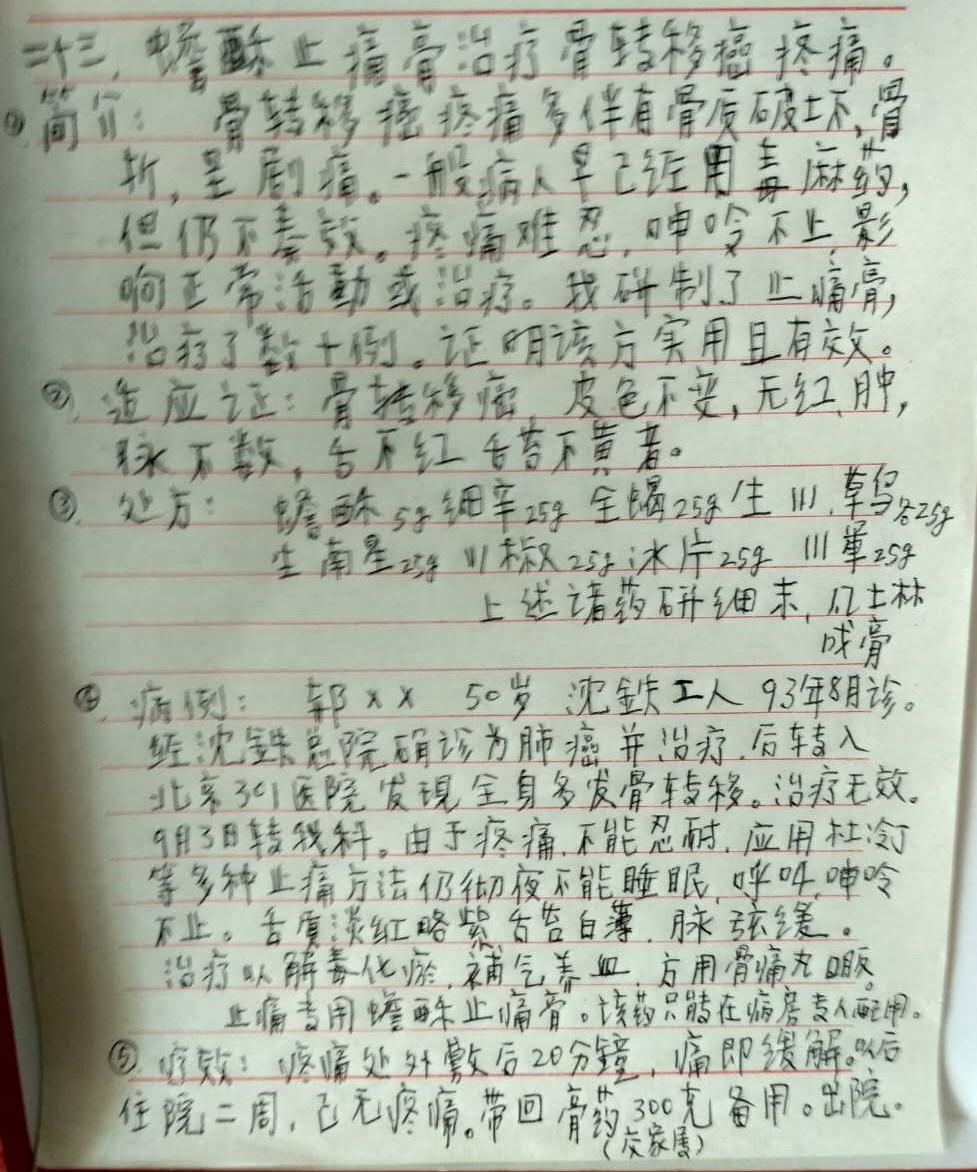 二十三、蟾酥止痛膏治疗骨转移癌疼痛。
①简介：骨转移癌疼痛多伴有骨质破坏、骨
折，呈剧痛。一般病人早已经用毒麻药，
但仍不奏效。疼痛难忍，呻吟不止，影
响正常活動或治疗。我研制了止痛膏，
治疗了数十例。证明该方实用且有效。
②适应证：骨转移癌，皮色不变，无红、肿，
脉不数，舌不红舌苔不黄者。
③处方：蟾酥5g细辛25g全蝎25g生川、草乌各25g
生南星25g川椒25g冰片25g川军25g
上述诸药研细末，凡士林
成膏
④病例：郭××50岁沈鉄工人93年8月诊。
经沈鉄总院确诊为肺癌并治疗，后转入
北京301医院发現全身多发骨转移。治疗无效。
9月3日转我科。由于疼痛，不能忍耐，应用杜冷丁
等多种止痛方法仍彻夜不能睡眠，呼叫，呻吟
不止。舌质淡红略紫舌苔白薄，脉弦缓。
治疗以解毒化瘀，補气养血，方用骨痛丸口服。
止痛专用蟾酥止痛膏。该药只能在病房专人配用。
⑤疗效：疼痛处外敷后20分鐘，痛即缓解。以后
住院二周，已无疼痛。带回膏药300克备用。出院。
（交家属）